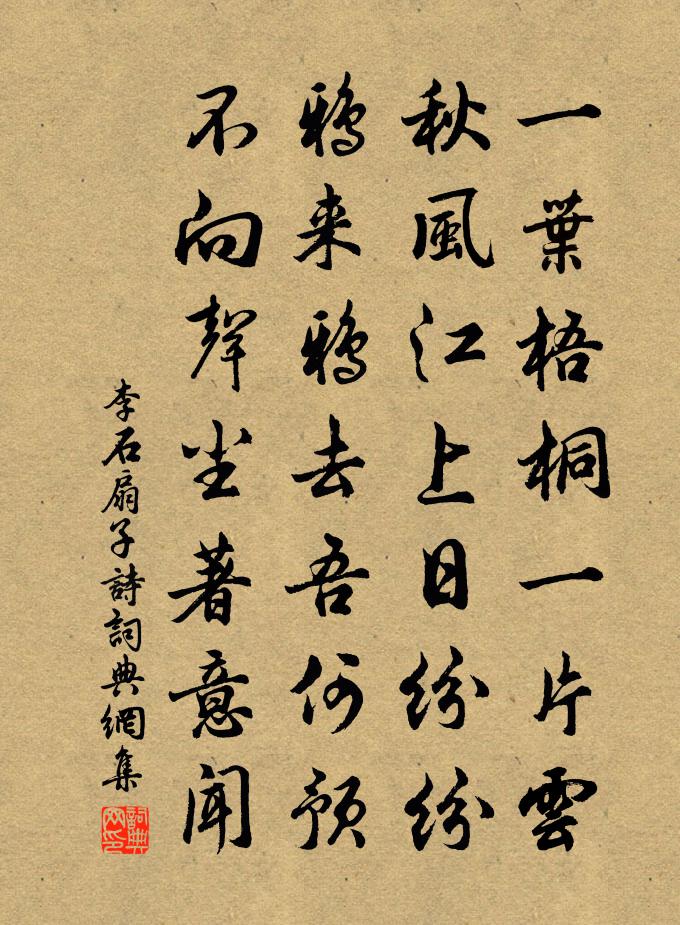 一葉梧桐一片雲
秋風江上日紛紛
鴉来鴉去吾何預
不向聲尘著意聞
李石扇子詩詞典網集
詞典網印